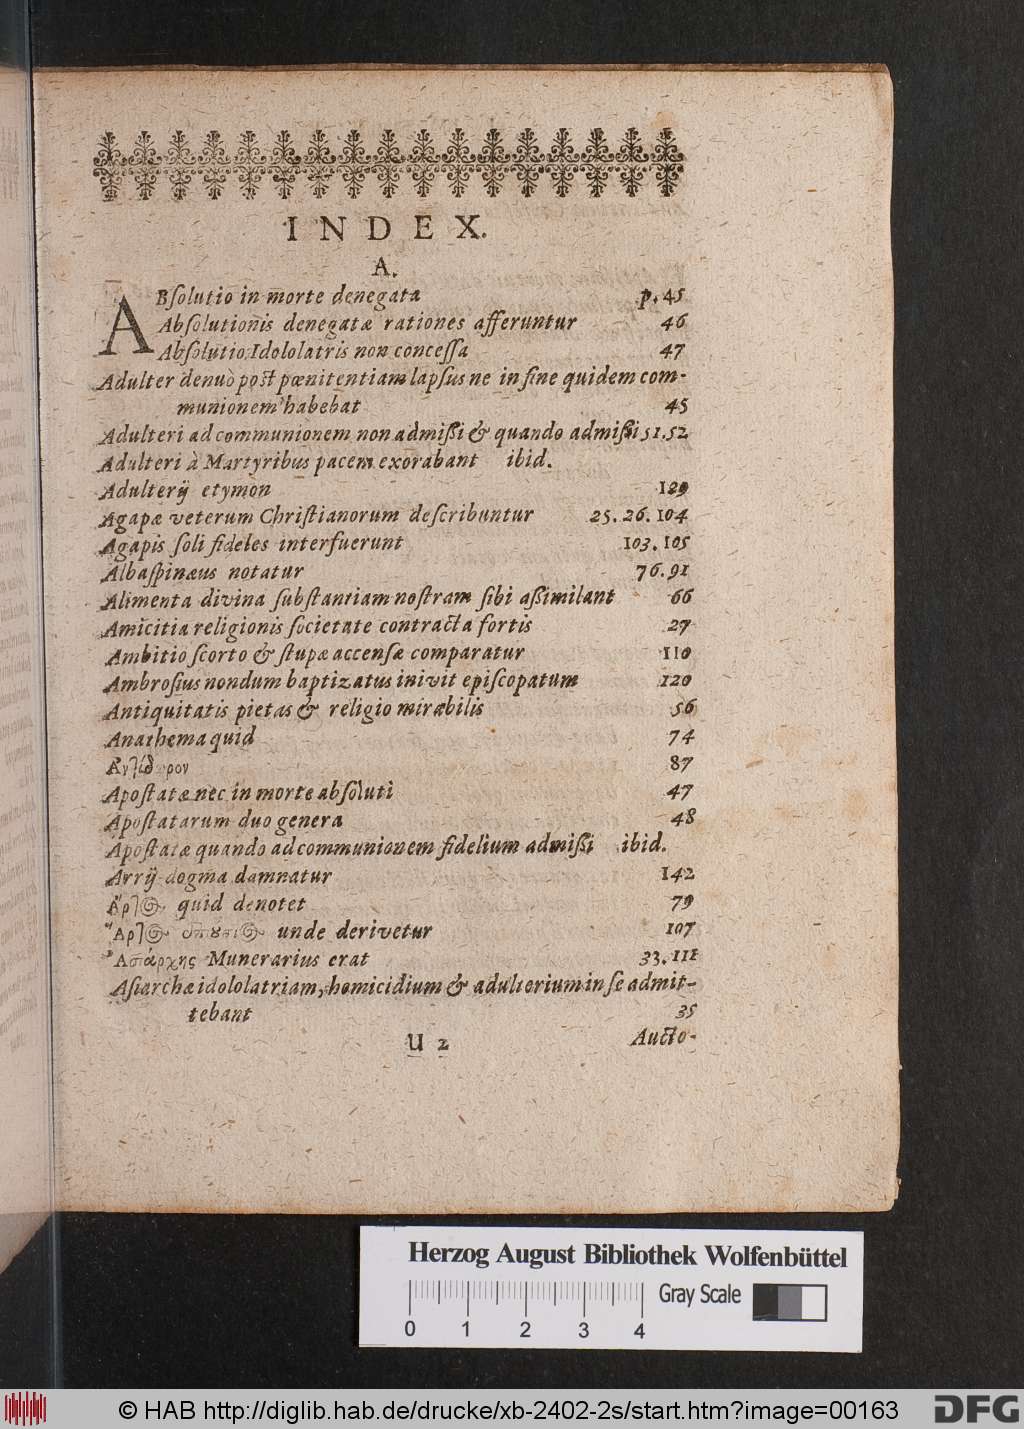 INDEX.
A.
ABſolutio in morte denegata p. 45
Abſolutionis denegatæ rationes afferuntur 46
Abſolutio Idololatris non conceſſa 47
Adulter denuò poſt pœnitentiam lapſus ne in fine quidem com-
munionem habebat 45
Adulteri ad communionem non admiſſi & quando admiſſi 51. 52
Adulteri à Martyribus pacem exorabant ibid.
Adulterij etymon 129
Agapæ veterum Chriſtianorum deſcribuntur 25. 26. 104
Agapis ſoli fideles interfuerunt 103. 105
Albaſpinæus notatur 76. 91
Alimenta divina ſubſtantiam noſtram ſibi aſſimilant 66
Amicitia religionis ſocietate contracta fortis 27
Ambitio ſcorto & ſtupæ accenſæ comparatur 110
Ambroſius nondum baptizatus inivit epiſcopatum 120
Antiquitatis pietas & religio mirabilis 56
Anathema quid 74
Ἀντίδωρον 87
Apoſtatæ nec in morte abſoluti 47
Apoſtatarum duo genera 48
Apoſtatæ quando ad communionem fidelium admiſſi ibid.
Arrij dogma damnatur 142
Ἄρτος quid denotet 79
Ἄρτος unde derivetur 107
Ἀσιάρχης Munerarius erat 33. 111
Aſiarchæ idololatriam, homicidium & adulterium in ſe admit-
tebant 35
U 2 Aucto-
Herzog August Bibliothek Wolfenbüttel
Gray Scale
0 1 2 3 4
© HAB http://diglib.hab.de/drucke/xb-2402-2s/start.htm?image=00163
DFG